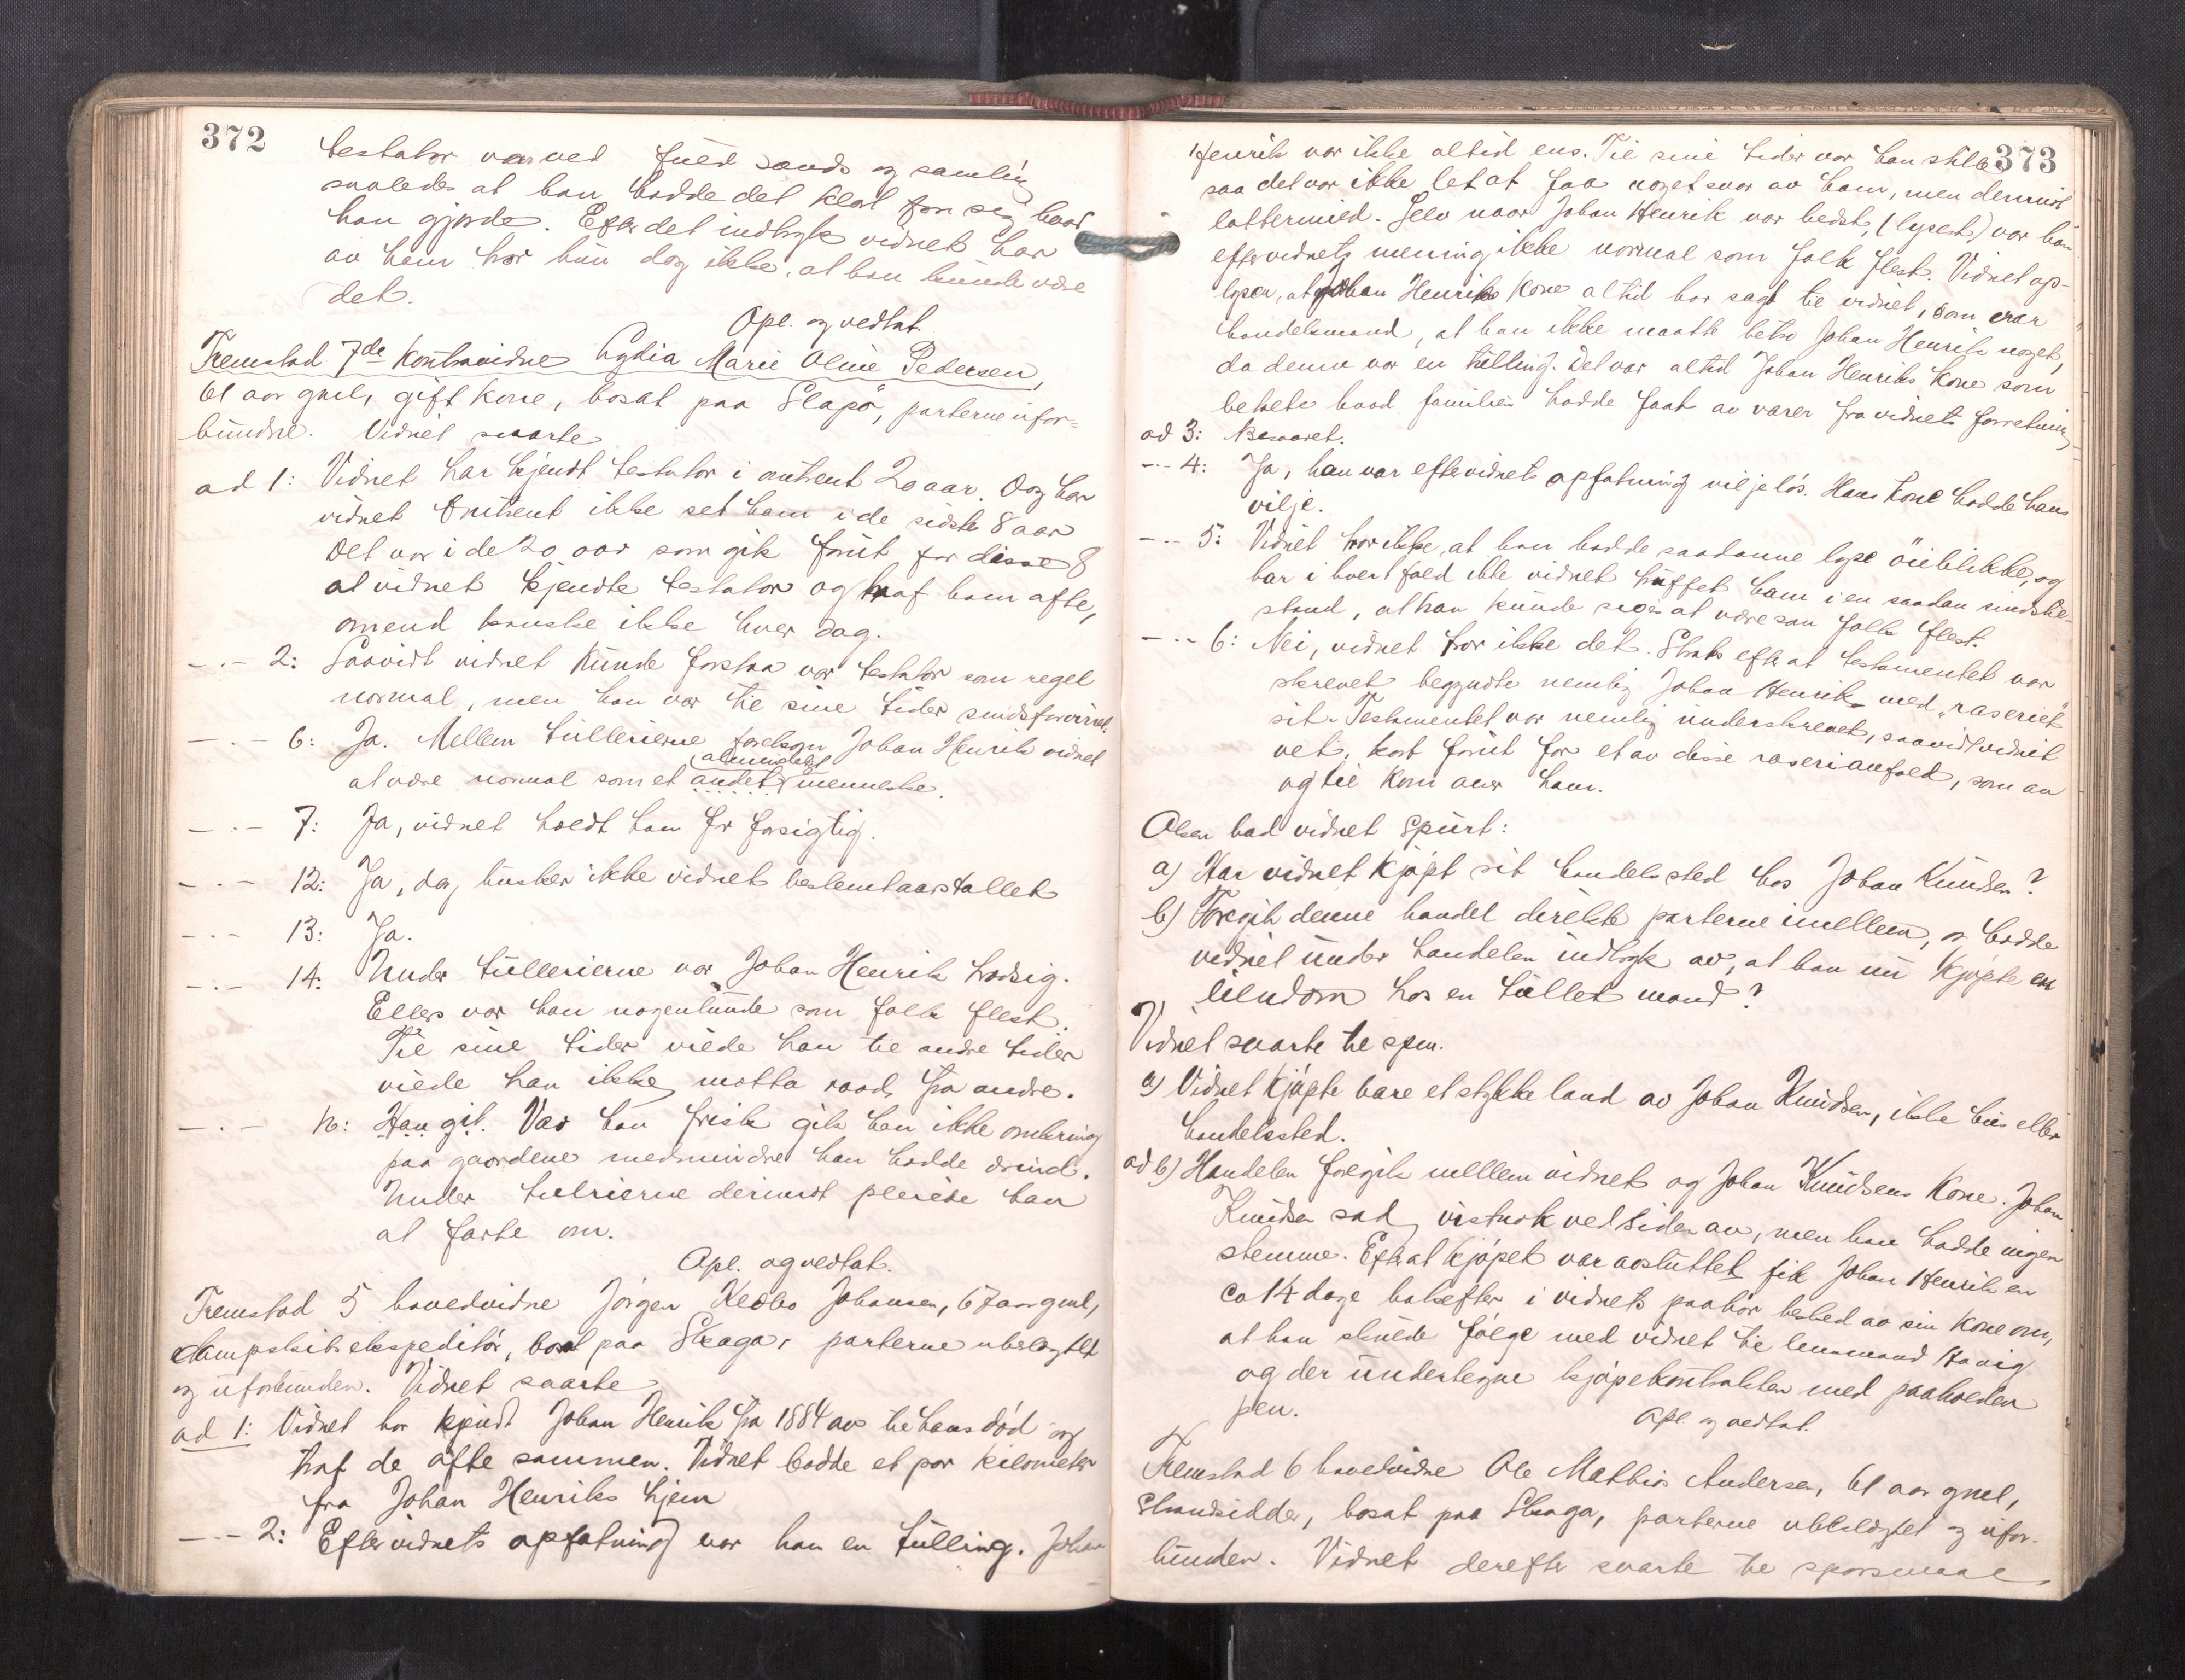 372
testator var ved fuld sands og samling
saaledes at han hadde det klart for sig hvad
han gjorde. Efter det indtryk vidnet har
av ham tror hun dog ikke, at han kunde være
det.
Opl. og vedtat.
Fremstod 7de kontravidne Lydia Marie Oline Pedersen,
61 aar gml, gift kone, bosat paa Slapö, parterne ufor-
bundne. Vidnet svarte
ad 1: Vidnet har kjendt testator i omtrent 20 aar. Dog har
vidnet omtrent ikke set ham i de sidste 8 aar
Det var i de 20 aar som gik forut for disse 8
at vidnet kjendte testator og traf ham ofte,
omend kanske ikke hver dag.
-.- 2: Saavidt vidnet kunde forstaa var testator som regel
normal, men han var til sine tider sindsforvirret.
-.- 6: Ja. Mellem tullerierne forekom Johan Henrik vidnet
almindeligt
at være normal som et andet menneske.
-.- 7: Ja, vidnet holdt ham for forsigtig.
-.- 12: Ja, dog husker ikke vidnet bestemt aarstallet
-.- 13: Ja.
-.- 14: Under tullerierne var Johan Henrik hadsig.
Ellers var han nogenlunde som folk flest.
Til sine tider vilde han til andre tider
vilde han ikke motta raad fra andre.
-.- 16: Han gik. Var han frisk gik han ikke omkring
paa gaardene medmindre han hadde ærind.
Under tulrierne derimot pleiede han
at farte om.
Opl. og vedtat.
Fremstod 5 hovedvidne Jörgen Johansen, 67 aar gml,
dampskibsekspeditör, bosat paa Skaga, parterne ubeslegtet
og uforbunden. Vidnet svarte
ad 1: Vidnet har kjendt Johan Henrik fra 1884 av til hans död og
traf de ofte sammen. Vidnet bodde et par kilometer
fra Johan Henriks hjem
-.- 2: Efter vidnets opfatning var han en tulling. Johan
373
Henrik var ikke altid ens. Til sine tider var han stille
saa det var ikke let at faa noget svar av ham, men derimot
lattermild. Selv naar Johan Henrik var bedst, (lysest) var han
efter vidnets mening ikke normal som folk flest. Vidnet op-
lyser, at Johan Henriks kone altid har sagt til vidnet, som var
handelsmand, at han ikke maatte betro Johan Henrik noget,
da denne var en tulling. Det var altid Johan Henriks kone som
betalte hvad familien hadde faat av varer fra vidnets forretning
ad 3: Besvaret.
-.- 4: Ja, han var efter vidnets opfatning viljelös. Hans kone hadde hans
vilje.
-.- 5: Vidnet tror ikke, at han hadde saadanne lyse öieblikke, og
har i hvert fald ikke vidnet truffet ham i en saadan sindstil-
stand, at han kunde siges at være som folk flest.
-.- 6: Nei, vidnet tror ikke det. Straks efter at testamentet var
skrevet begyndte nemlig Johan Henrik med "raseriet"
sit. Testamentet var nemlig underskrevet, saavidt vidnet
vet, kort forut for et av disse raserianfald, som av
og til kom over ham.
Olsen bad vidnet spurt:
a) Har vidnet kjöpt sit handelssted hos Johan Knudsen?
b) Foregik denne handel direkte parterne imellem, og hadde
vidnet under handelen indtryk av, at han nu kjöpte en
eiendom hos en tullet mand?
Vidnet svarte til spm.
a) Vidnet kjöpte bare et stykke land av Johan Knudsen, ikke hus eller
handelssted.
ad b) Handelen foregik mellem vidnet og Johan Knudsens kone. Johan
Knudsen sad vistnok ved siden av, men han hadde ingen
stemme. Efterat kjöpet var avsluttet fik Johan Henrik en
ca 14 dage bakefter i vidnets paahör besked av sin kone om,
at han skulde fölge med vidnet til lensmand Havig
og der undertegne kjöpekontrakten med paaholden
pen.
Opl. og vedtat.
Fremstod 6 hovedvidne Ole Mathias Andersen, 61 aar gml,
Strandsidder, bosat paa Skaga, parterne ubeslegtet og ufor-
bunden. Vidnet derefter svarte til sporsmaal